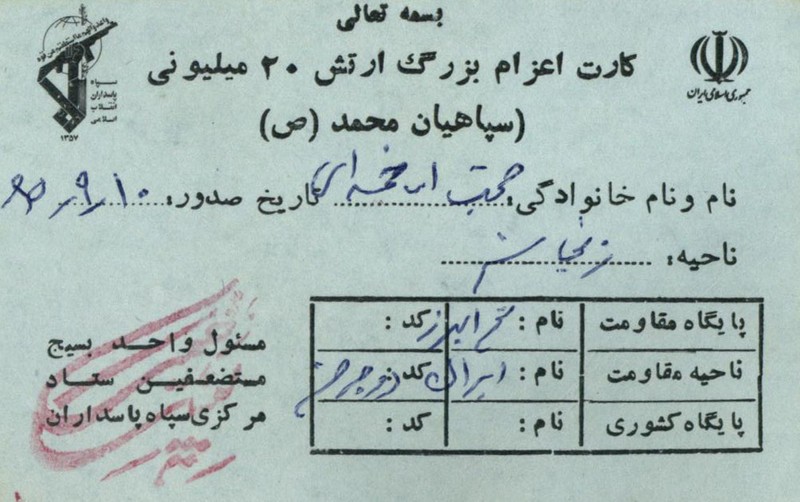 بسمه تعالی
کارت اعزام بزرگ ارتش ۲۰ میلیونی
(سپاهیان محمد (ص)
جمهوری اسلامی ایران
سپاه
پاسداران
انقلاب
اسلامی
۱۳۵۷
نام و نام خانوادگی: تاریخ صدور: ۱۰ ر ۹ ر ۶۵
ناحیه: زنجان
پایگاه مقاومت نام: کد:
ناحیه مقاومت نام: ایران کد:
پایگاه کشوری نام: کد:
مسئول واحد بسیج
مستضعفین ستاد
مرکزی سپاه پاسداران